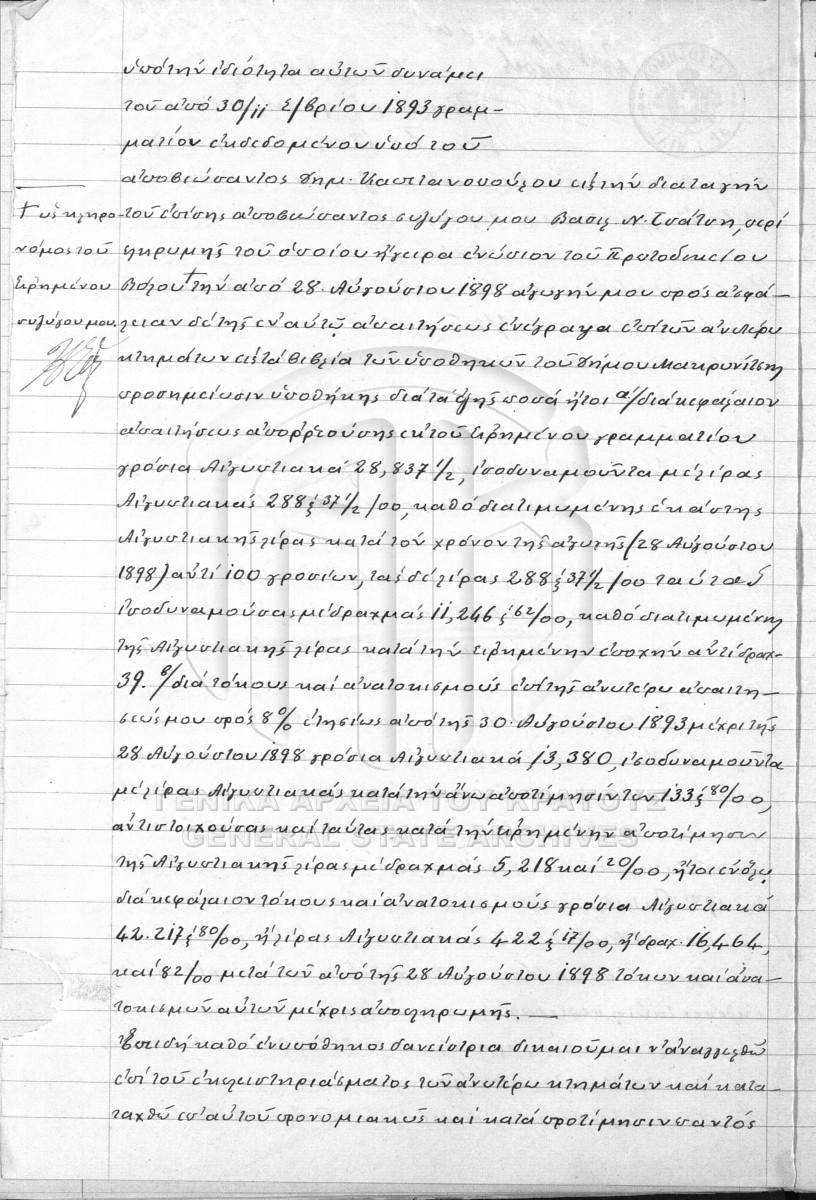 ὑπὸ τὴν ἰδιότητα αὐτῶν δυνάμει
τοῦ ἀπὸ 30/11 7/βρίου 1893 γραμ-
ματίου ἐκδεδομένου ὑπὸ τοῦ
ἀποβιώσαντος Δημ. Καπιτανοπούλου εἰς τὴν διαταγὴν
τοῦ ἐπίσης ἀποβιώσαντος συζύγου μου Βασιλ. Ν. Τσάτση, περὶ
πληρωμῆς τοῦ ὁποίου ἤγειρα ἐνώπιον τοῦ Πρωτοδικείου
Βόλου + τὴν ἀπὸ 28 Αὐγούστου 1898 ἀγωγήν μου πρὸς ἀσφά-
λειαν δὲ τῆς ἐν αὐτῷ ἀπαιτήσεως ἐνέγραψα ἐπὶ τῶν ἀνωτέρω
κτημάτων εἰς τὰ βιβλία τῶν ὑποθηκῶν τοῦ Δήμου Μακρυνίτσης
προσημείωσιν ὑποθήκης διὰ τὰ ἑξῆς ποσὰ ἤτοι α/ διὰ κεφάλαιον
ἀπαιτήσεως ἀπορρεούσης ἐκ τοῦ εἰρημένου γραμματίου
γρόσια Αἰγυπτιακὰ 28,837 1/2, ἰσοδυναμοῦντα μὲ λίρας
Αἰγυπτιακὰς 288 ξ 37 1/2 /00, καθὸ διατιμωμένης ἑκάστης
Αἰγυπτιακῆς λίρας κατὰ τὸν χρόνον τῆς ἀγωγῆς (28 Αὐγούστου
1898) ἀντὶ 100 γροσίων, τὰς δὲ λίρας 288 ξ 37 1/2 /00 ταύτας
ἰσοδυναμούσας μὲ δραχμὰς 11,246 ξ 62/00, καθὸ διατιμωμένης
τῆς Αἰγυπτιακῆς λίρας κατὰ τὴν εἰρημένην ἐποχὴν ἀντὶ δραχ-
39. β/ διὰ τόκους καὶ ἀνατοκισμοὺς ἐπὶ τῆς ἀνωτέρω ἀπαιτή-
σεώς μου πρὸς 8% ἐτησίως ἀπὸ τῆς 30 Αὐγούστου 1893 μέχρι τῆς
28 Αὐγούστου 1898 γρόσια Αἰγυπτιακὰ 13,380, ἰσοδυναμοῦντα
μὲ λίρας Αἰγυπτιακὰς κατὰ τὴν ἄνω ἀποτίμησίν των 133 ξ 80/00,
ἀντιστοιχούσας καὶ ταύτας κατὰ τὴν εἰρημένην ἀποτίμησιν
τῆς Αἰγυπτιακῆς λίρας μὲ δραχμὰς 5,218 καὶ 20/00, ἤτοι ἐν ὅλῳ
διὰ κεφάλαιον τόκους καὶ ἀνατοκισμοὺς γρόσια Αἰγυπτιακὰ
42.217 ξ 80/00, ἢ λίρας Αἰγυπτιακὰς 422 ξ 17/00, ἢ δραχ. 16,464,
καὶ 82/00 μετὰ τῶν ἀπὸ τῆς 28 Αὐγούστου 1898 τόκων καὶ ἀνα-
τοκισμῶν αὐτῶν μέχρις ἀποπληρωμῆς. —
Ἐπειδὴ καθὸ ἐνυπόθηκος δανείστρια δικαιοῦμαι ν' ἀναγγελθῶ
ἐπὶ τοῦ ἐκπλειστηριάσματος τῶν ἀνωτέρω κτημάτων καὶ κατα-
ταχθῶ ἐπ' αὐτοῦ προνομιακῶς καὶ κατὰ προτίμησιν παντὸς
+ ὡς κληρο-
νόμος τοῦ
εἰρημένου
συζύγου μου.
ΓΕΝΙΚΑ ΑΡΧΕΙΑ ΤΟΥ ΚΡΑΤΟΥΣ
GENERAL STATE ARCHIVES